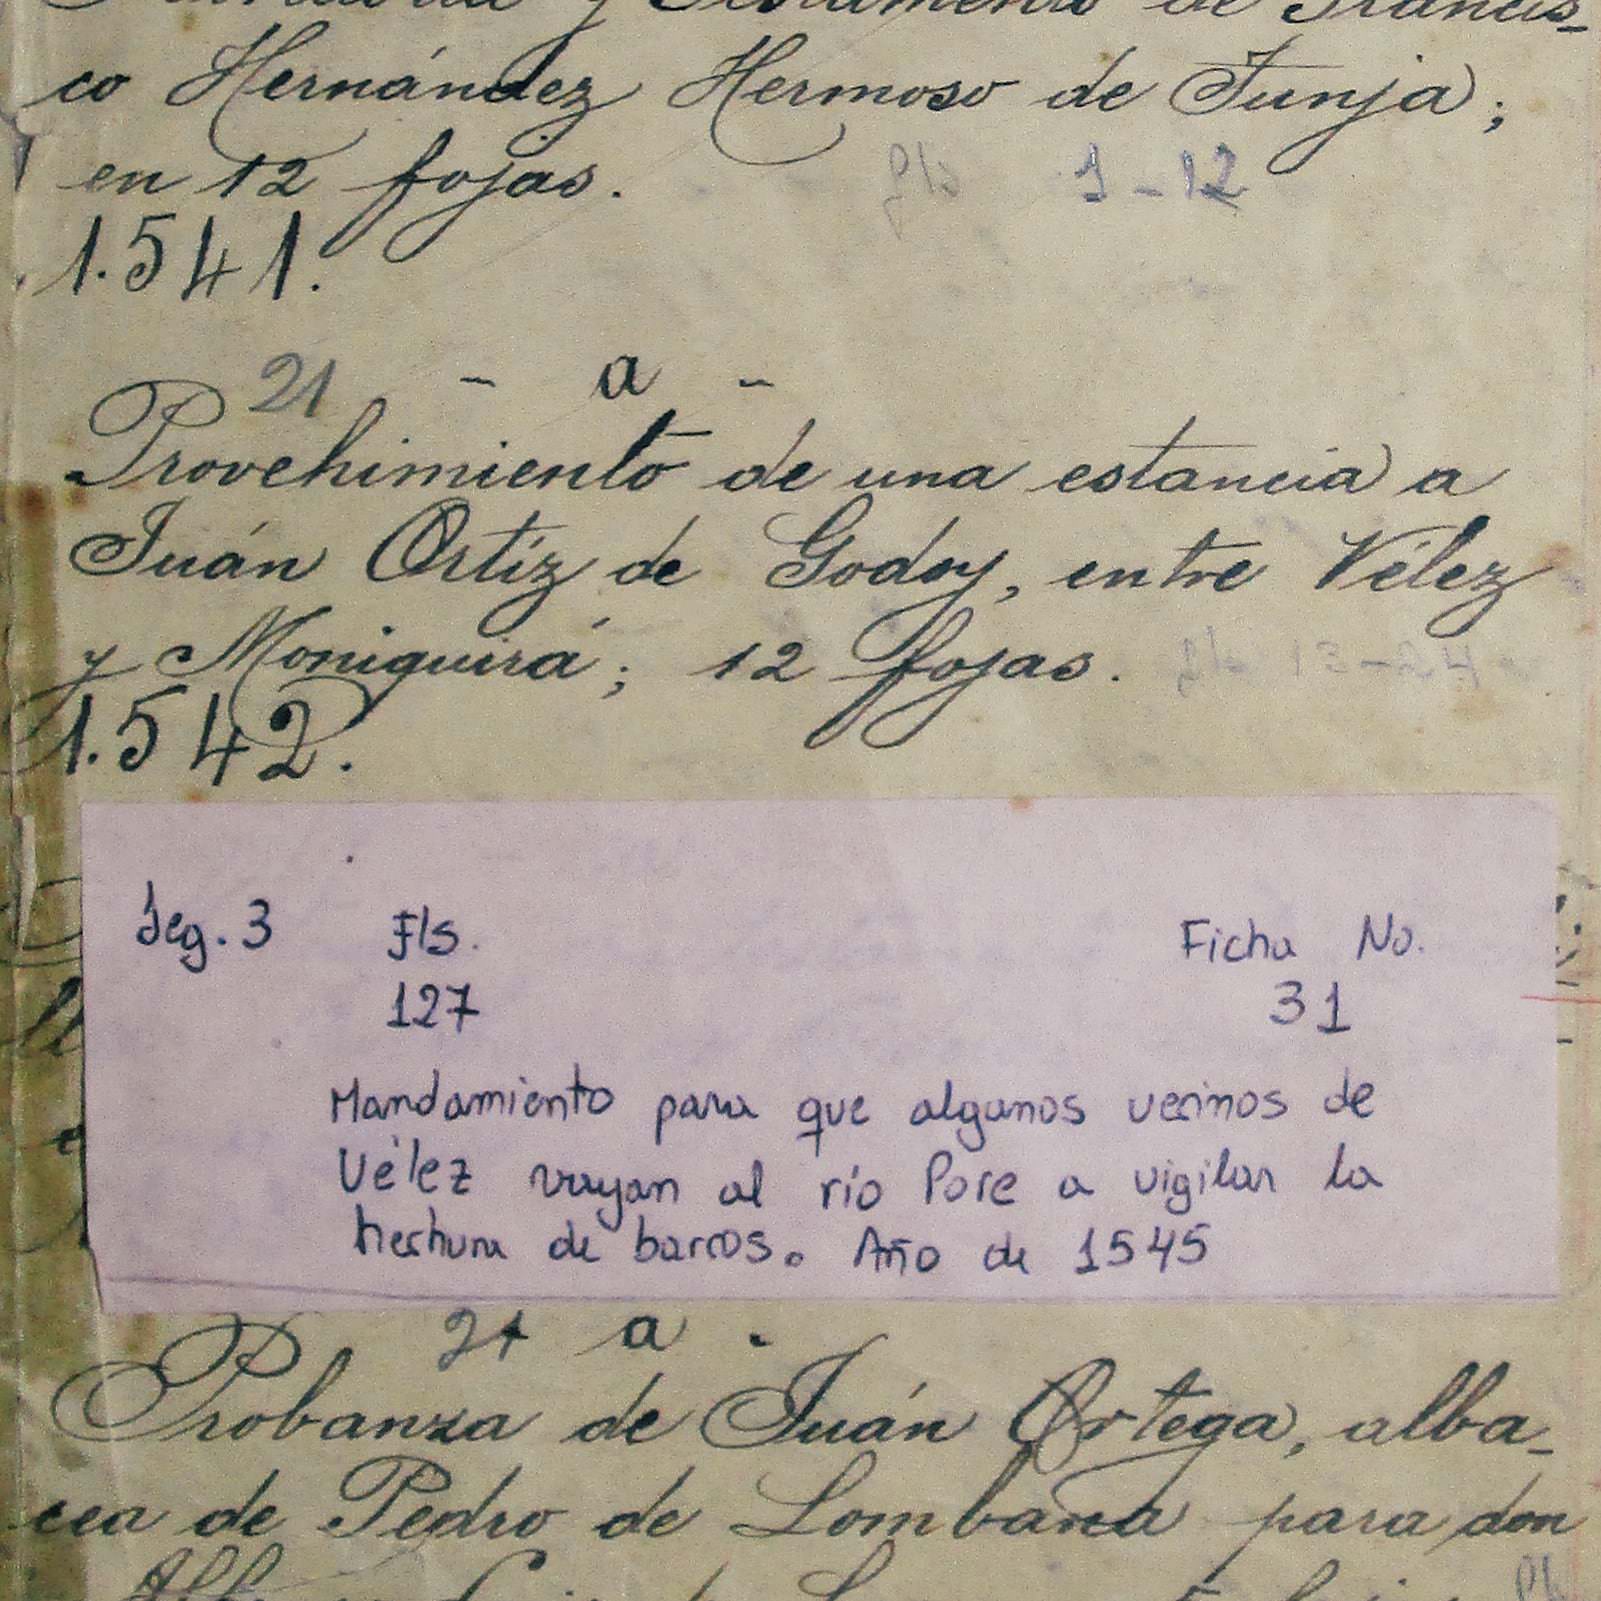 y Testamento de Francis-
co Hernández Hermoso de Tunja;
en 12 fojas. fls 1-12
1.541.
21 - a -
Provehimiento de una estancia a
Juán Ortíz de Godoy, entre Vélez
y Moniquirá; 12 fojas. fls 13-24
1.542.
Leg. 3 Fls. Ficha No.
127 31
Mandamiento para que algunos vecinos de
Vélez vayan al río Pore a vigilar la
hechura de barcos. Año de 1545
24 a -
Probanza de Juán Ortega, alba-
cea de Pedro de Lombana para don